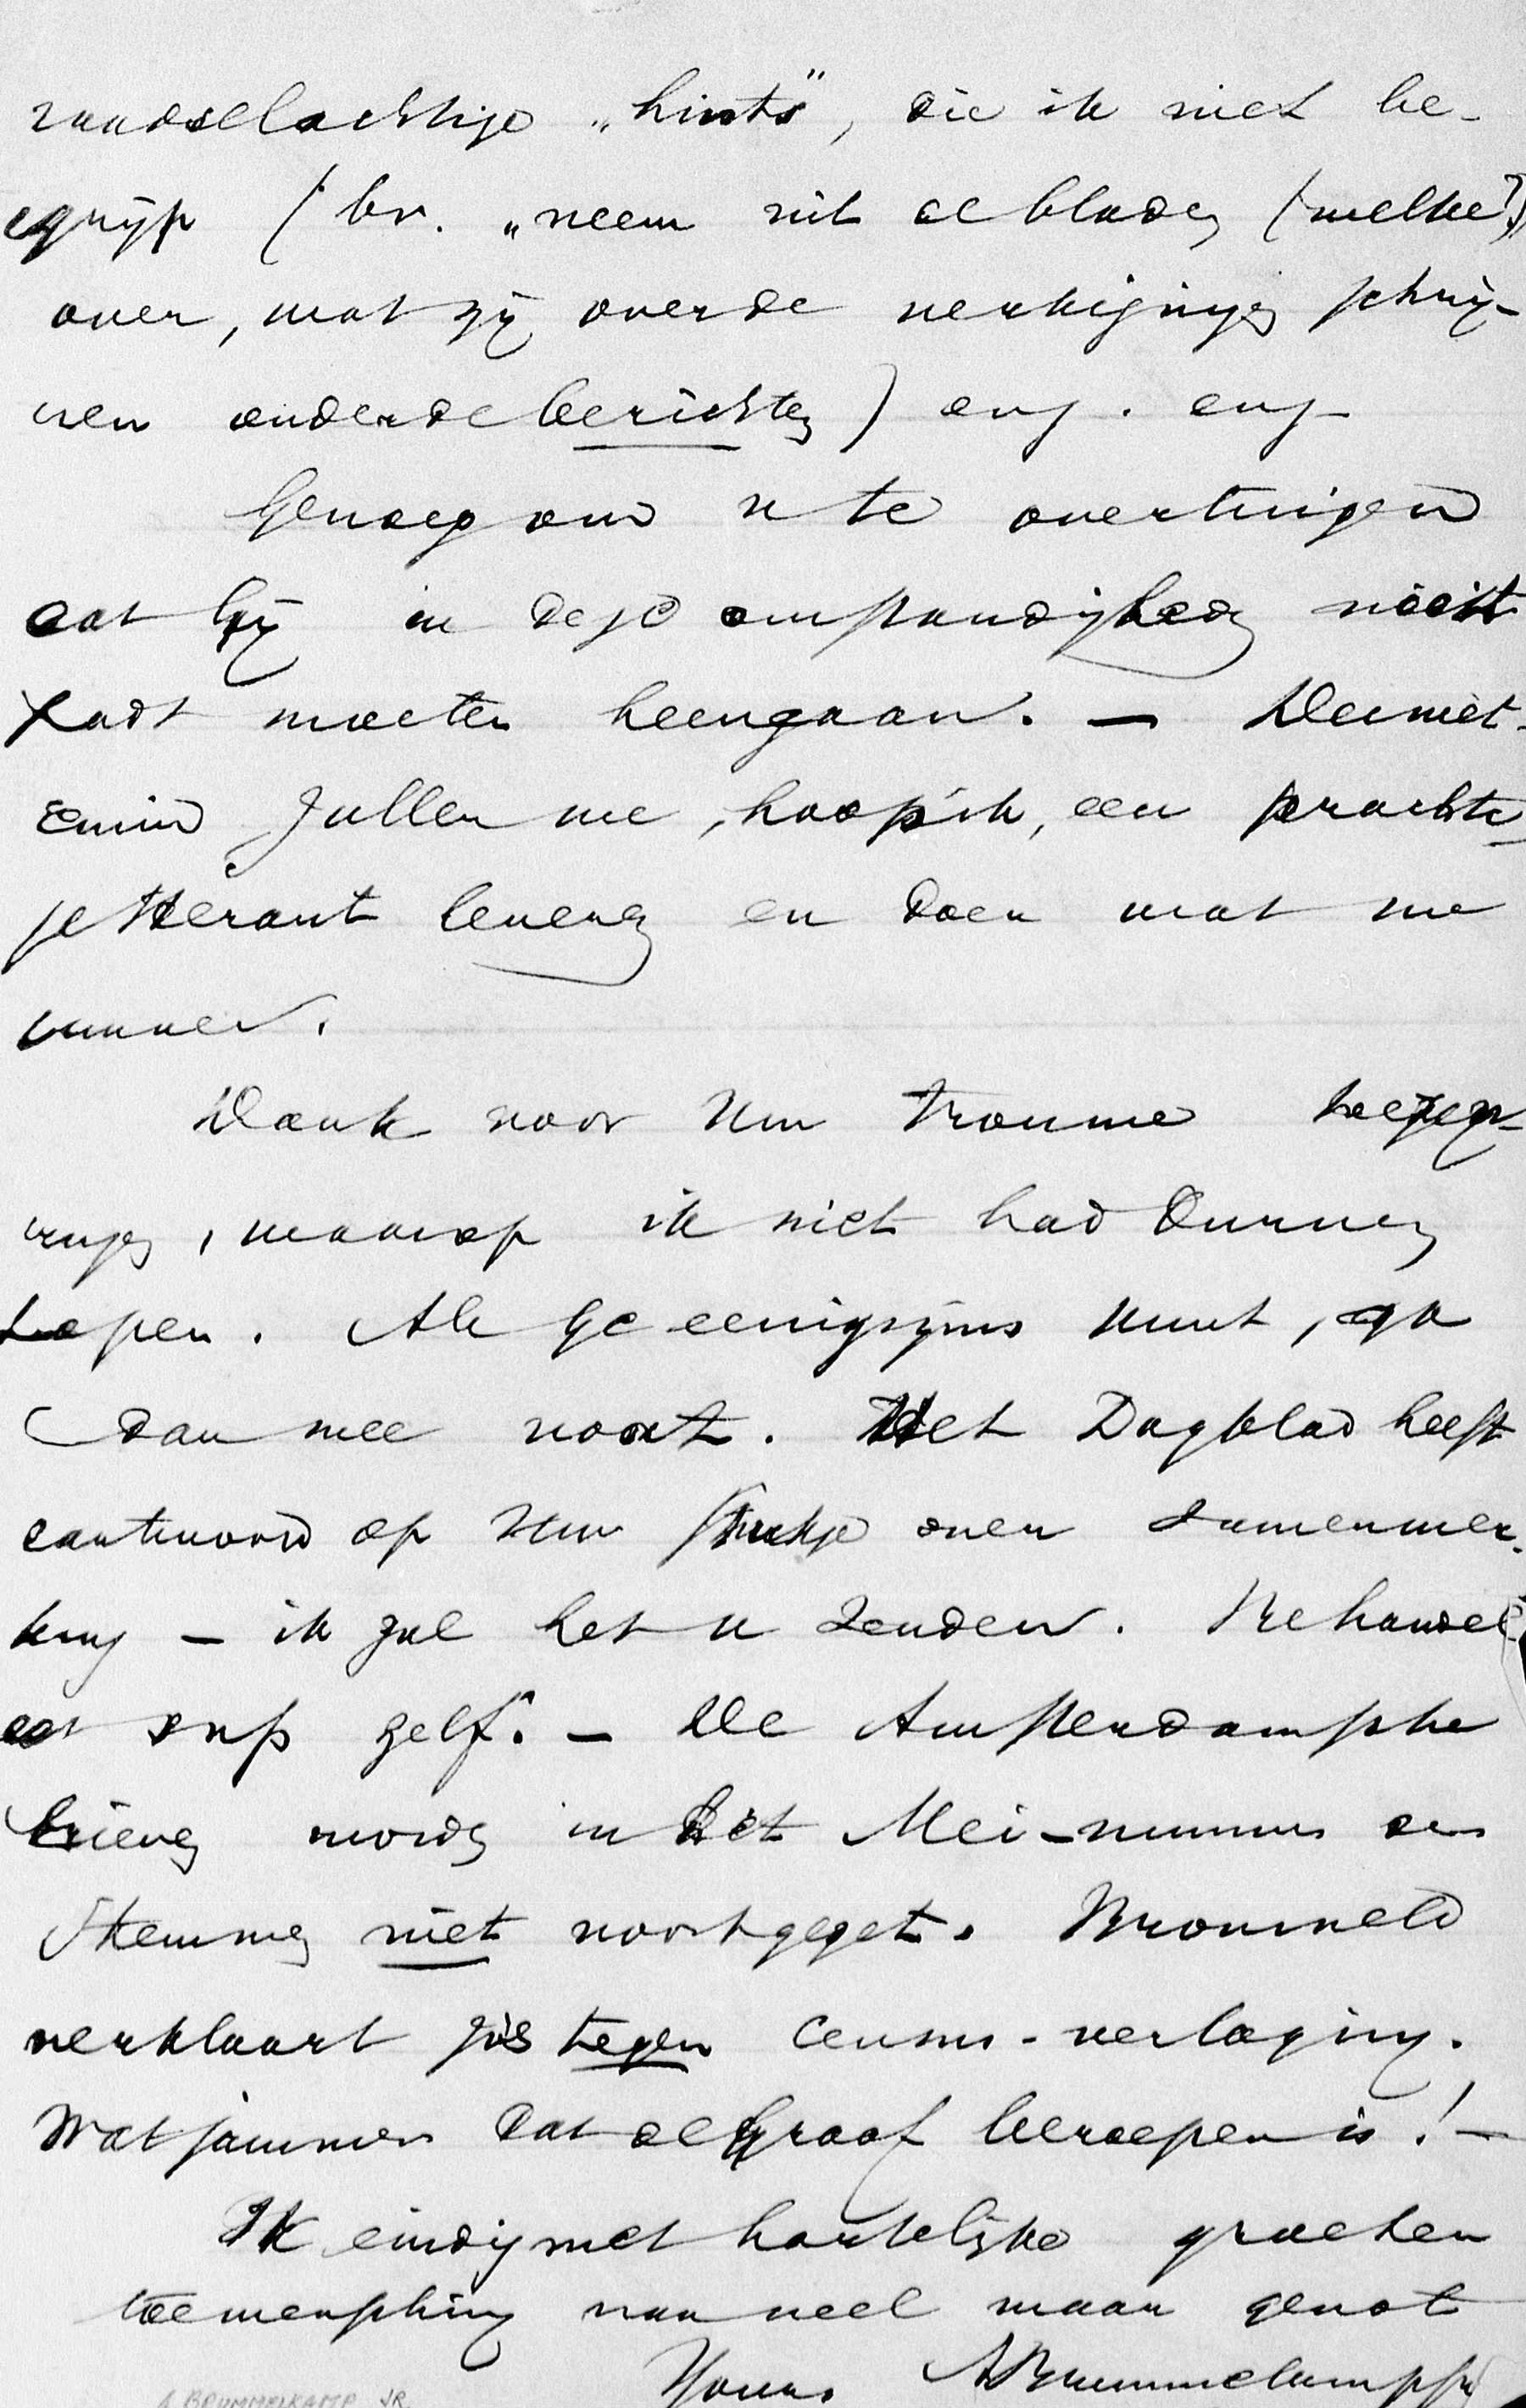 raadselachtige „hints”, die ik niet be-
grijp (bv. „neem uit de bladen (welke?)
over, wat zij over de verkiezingen schrij-
ven onder de berichten) enz. enz.
Genoeg om u te overtuigen
dat hij in deze omstandigheden nooit
hadt moeten heengaan. — Desniet-
temin zullen we, hoop ik, een prachti-
ge Heraut leveren en doen wat we
kunnen.
Dank voor Uw trouwe bezor-
gingen, waarop ik niet had durven
hopen. Als ge eenigszins kunt, ga
dan mee voort. Het Dagblad heeft
geantwoord op Uw stukje over samenwer-
king — ik zal het u zenden. Behandel
dat ens zelf. — De Amsterdamsche
brieven worden in het Mei-nummer der
Stemmen niet voortgezet. Bronsveld
verklaart zich tegen census-verlaging.
Wat jammer dat de Graaf beroepen is! —
Ik eindig met hartelijke groeten
toewensching van veel waar genot
Yours ABrummelkamp Jr
A. BRUMMELKAMP JR.